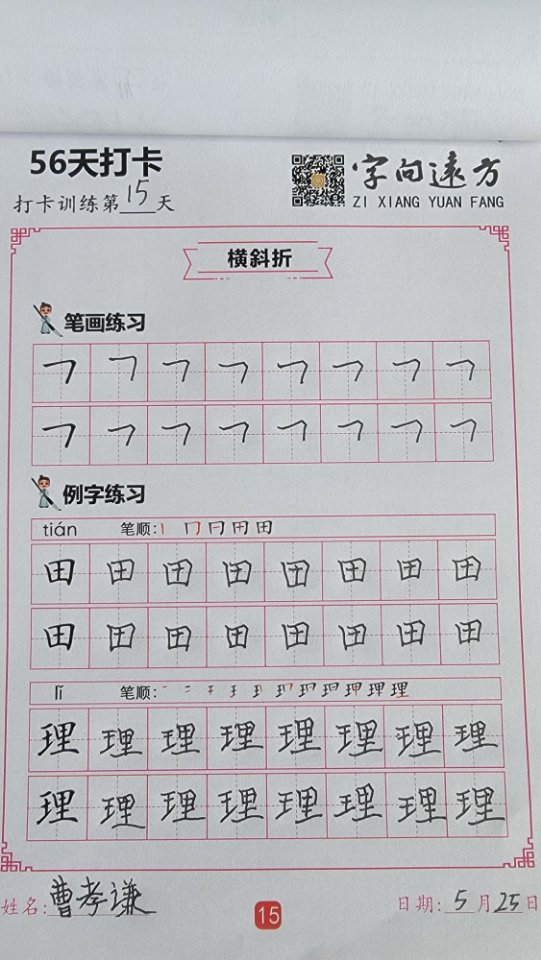 56天打卡
字向远方
ZI XIANG YUAN FANG
打卡训练第15天
横斜折
笔画练习
㇇ ㇇ ㇇ ㇇ ㇇ ㇇ ㇇ ㇇
㇇ ㇇ ㇇ ㇇ ㇇ ㇇ ㇇ ㇇
例字练习
tián 笔顺:
田 田 田 田 田 田 田 田
田 田 田 田 田 田 田 田
lǐ 笔顺:
理 理 理 理 理 理 理 理
理 理 理 理 理 理 理 理
姓名:曹孝谦
15
日期:5月25日